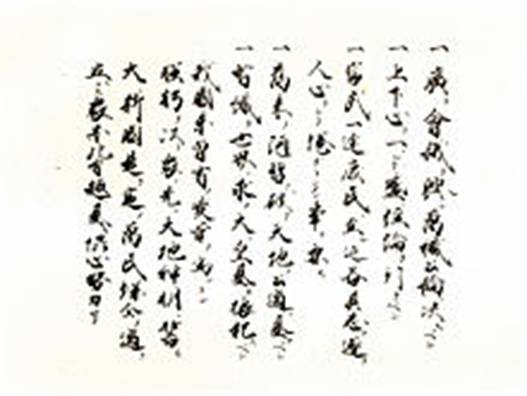 一 廣ク會議ヲ興シ萬機公論ニ決スヘシ
一 上下心ヲ一ニシテ盛ニ經綸ヲ行フヘシ
一 官武一途庶民ニ至ル迄各其志ヲ遂ケ
人心ヲシテ倦マサラシメン事ヲ要ス
一 舊來ノ陋習ヲ破リ天地ノ公道ニ基クヘシ
一 智識ヲ世界ニ求メ大ニ皇基ヲ振起スヘシ
我國未曾有ノ變革ヲ爲ントシ
朕躬ヲ以テ衆ニ先ンシ天地神明ニ誓ヒ
大ニ斯國是ヲ定メ萬民保全ノ道ヲ
立ントス衆亦此旨趣ニ基キ協心努力セヨ